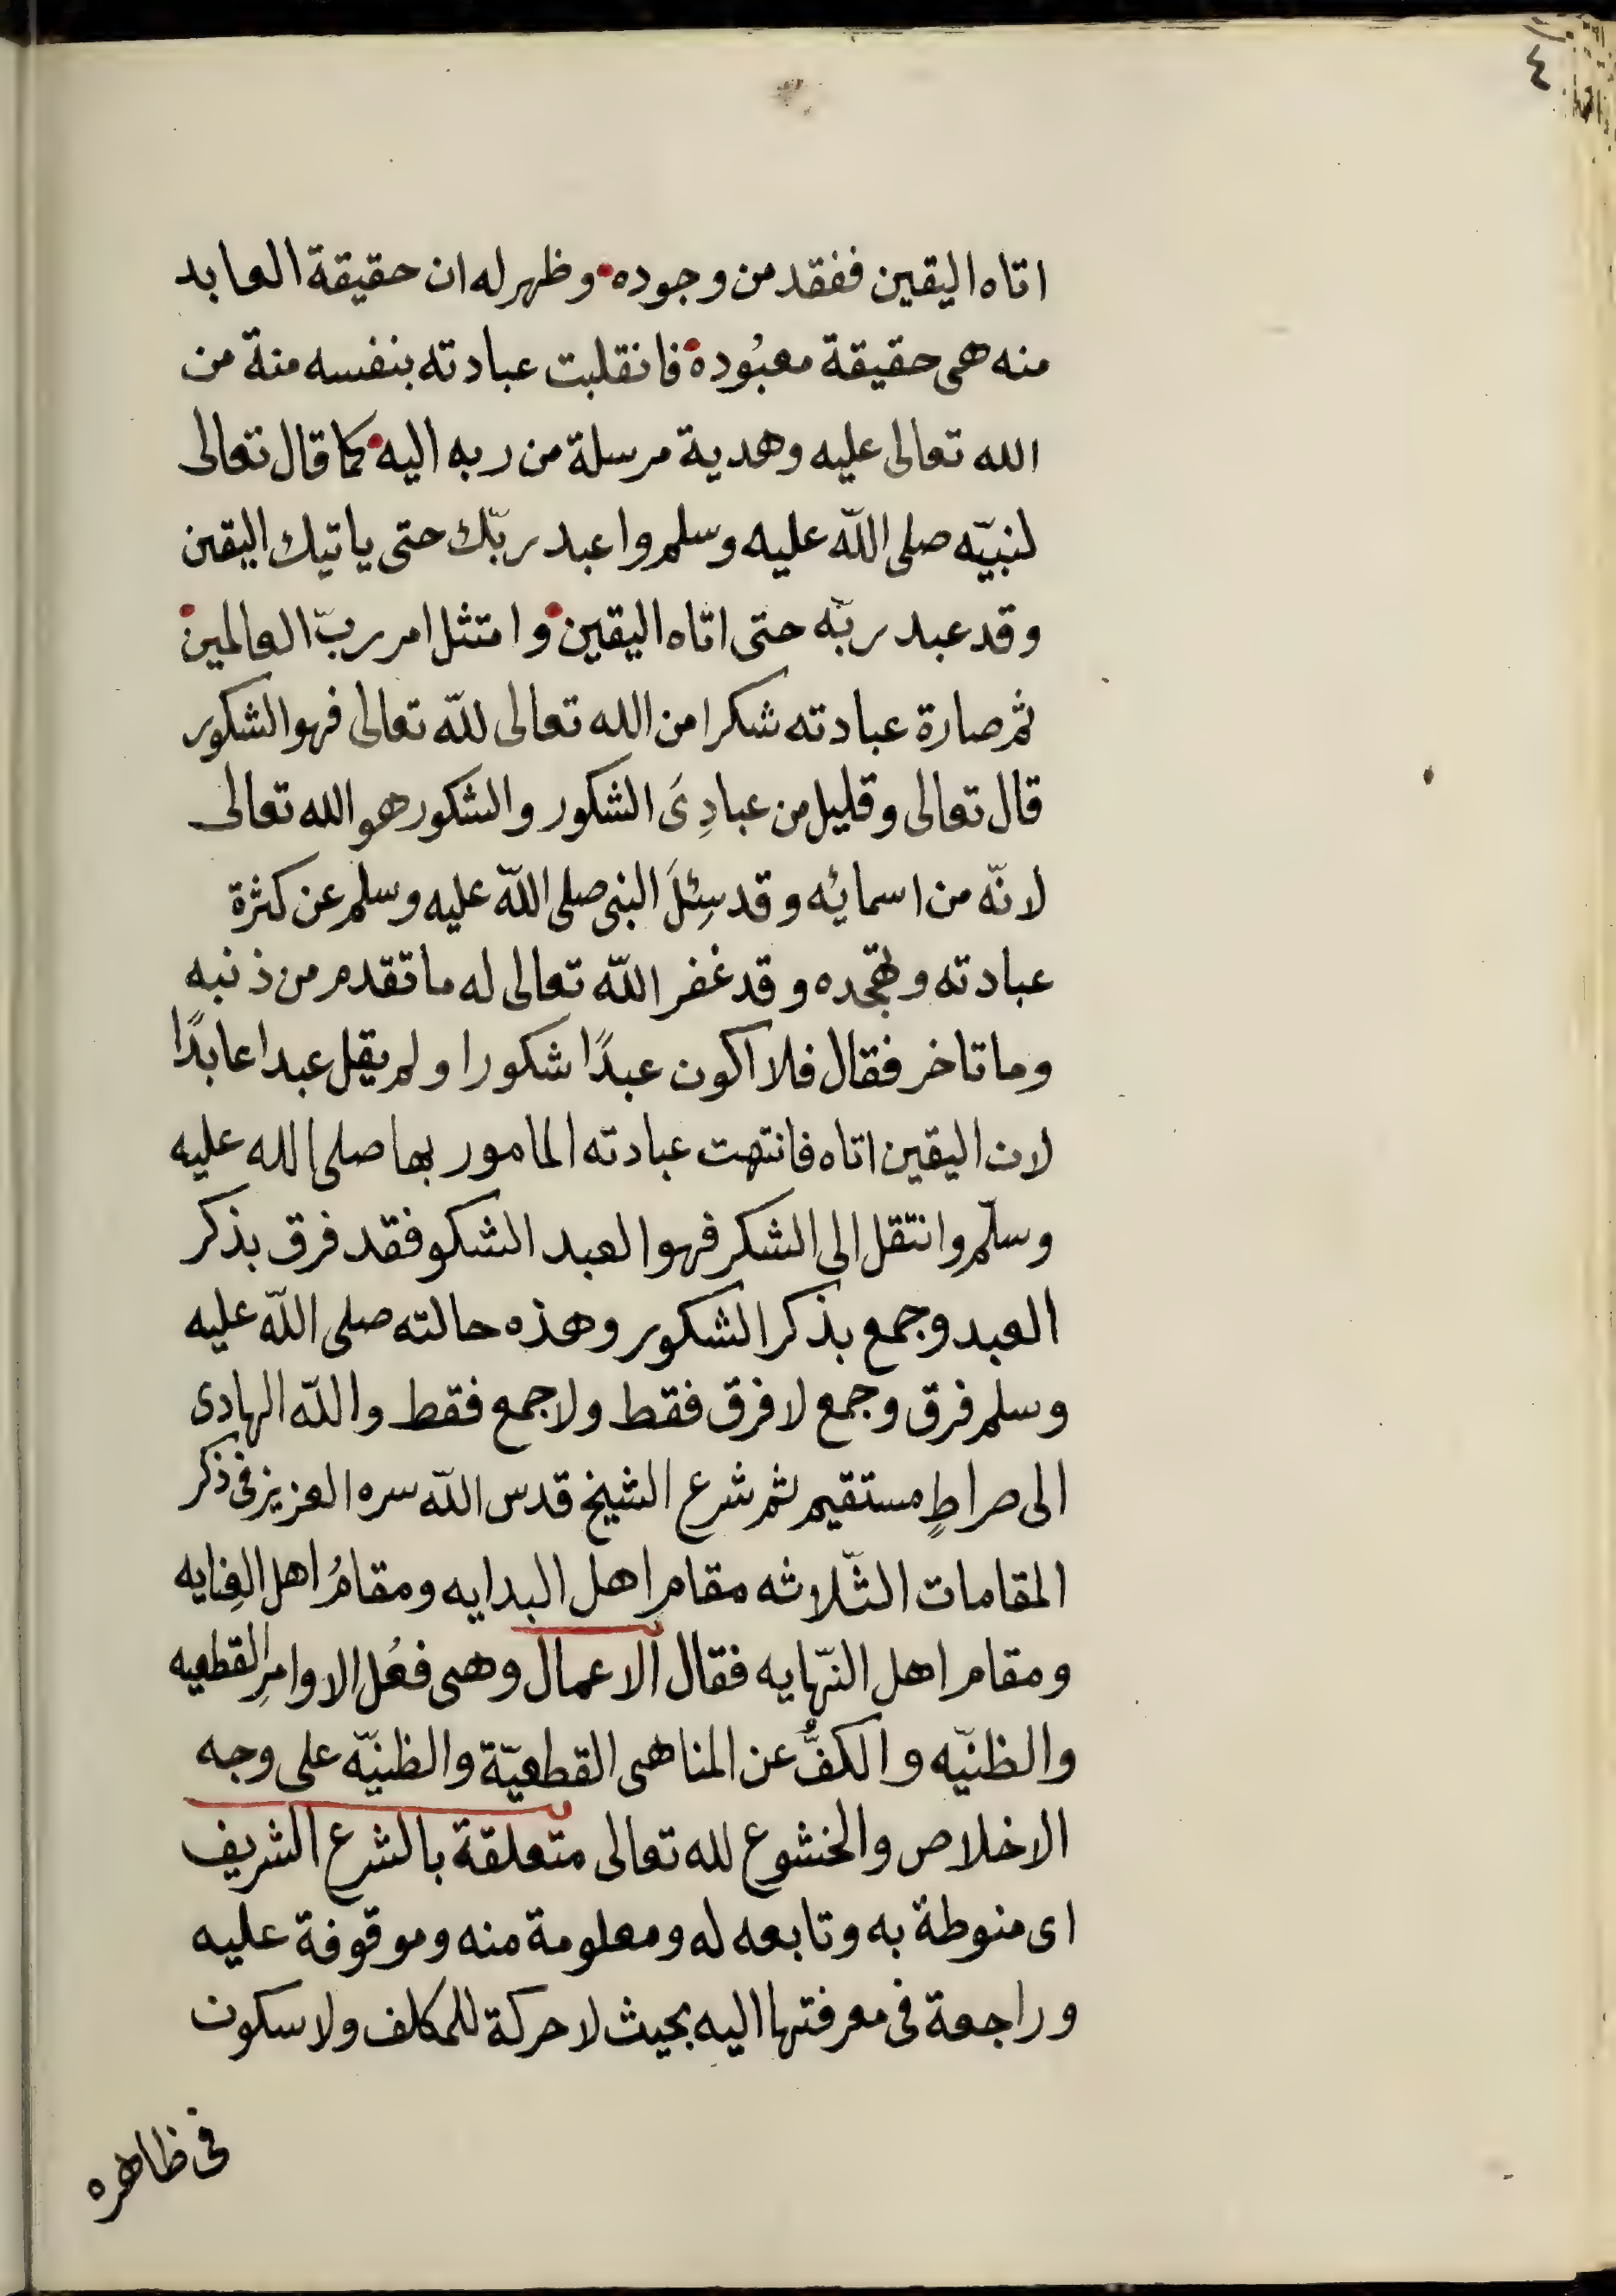 ٤
اتاه اليقين ففقد من وجوده وظهر له ان حقيقة العابد
منه هى حقيقة معبُوده فانقلبت عبادته بنفسه منة من
الله تعالى عليه وهدية مرسلة من ربه اليه كما قال تعالى
لنبيّه صلى اللّه عليه وسلم واعبد ربّك حتى ياتيك اليقين
وقد عبد ربّه حتى اتاه اليقين وامتثل امر ربّ العالمين
ثم صارة عبادته شكرا من الله تعالى للّه تعالى فهو الشكور
قال تعالى وقليل من عبادِىَ الشكور والشكور هو الله تعالى
لانّه من اسمائه وقد سِئلَ النبى صلى اللّه عليه وسلم عن كثرة
عبادته وتهجده وقد غفر اللّه تعالى له ما تقدم من ذنبه
وما تاخر فقال فلا اكون عبدًا شكورا ولم يقل عبدا عابدًا
لان اليقين اتاه فانتهت عبادته المامور بها صلى الله عليه
وسلّم وانتقل الى الشكر فهو العبد الشكو فقد فرق بذكر
العبد وجمع بذكر الشكور وهذه حالته صلى اللّه عليه
وسلم فرق وجمع لا فرق فقط ولا جمع فقط واللّه الهادى
الى صراطٍ مستقيم ثم شرع الشيخ قدس اللّه سره العزيز فى ذكر
المقامات الثّلاثه مقام اهل البدايه ومقامُ اهل الفِنايه
ومقام اهل النّهايه فقال الاعمال وهى فعُل الاوامرِ القطعيه
والظنيّه والكفُّ عن المناهى القطعيّة والظنيّه على وجه
الاخلاص والخشوع لله تعالى متعلقة بالشرع الشريف
اى منوطة به وتابعه له ومعلومة منه وموقوفة عليه
وراجعة فى معرفتها اليه بحيث لا حركة للمكلف ولا سكون
فى ظاهره